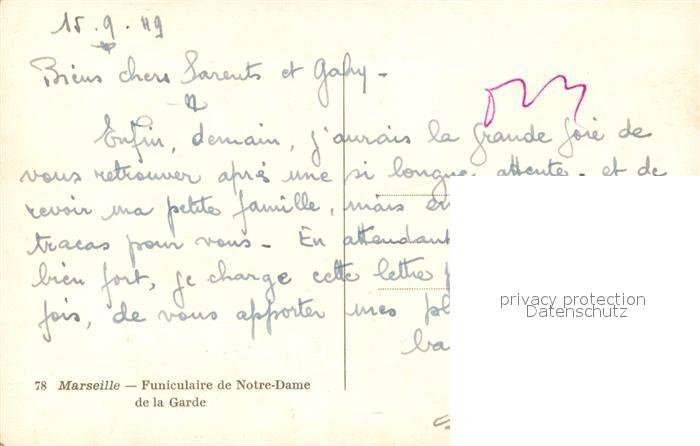 15.9.49
Biens chers Parents et Gaby -
Enfin, demain, j'aurais la grande joie de
vous retrouver après une si longue attente - et de
revoir ma petite famille, mais
tracas pour vous - En attendant
bien fort, je charge cette lettre
fois, de vous apporter mes
ba
privacy protection
Datenschutz
78 Marseille — Funiculaire de Notre-Dame
de la Garde